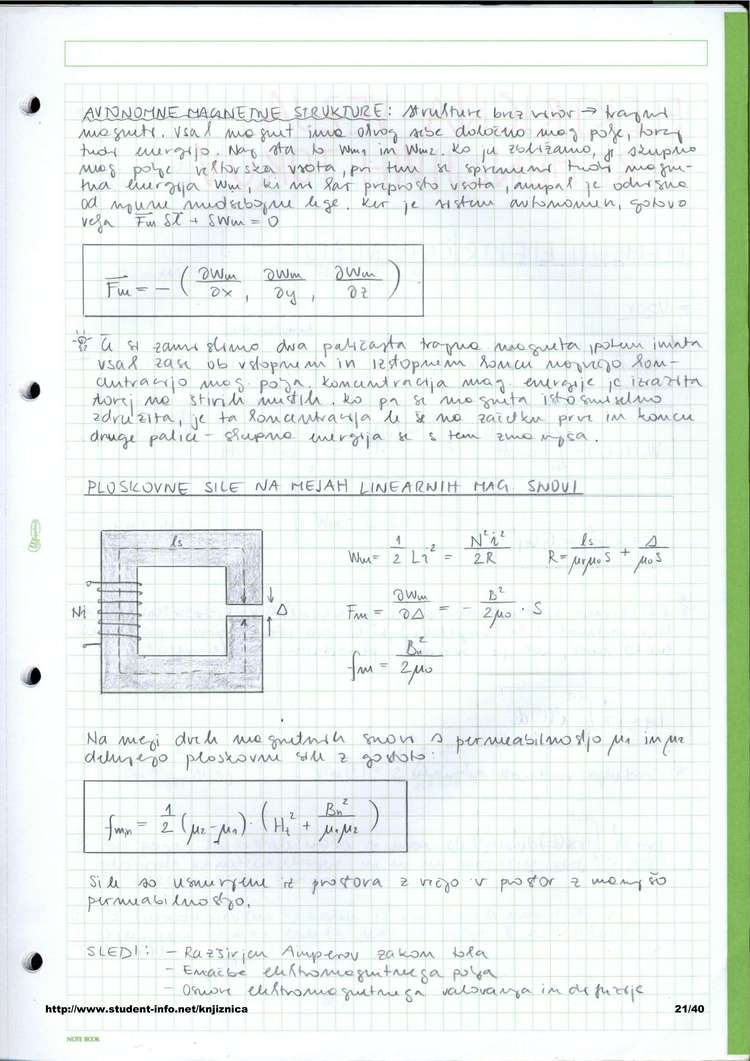 AVTONOMNE MAGNETNE STRUKTURE: strukture brez virov → trajni
magneti. Vsak magnet ima okrog sebe določeno mag polje, torej
tudi energijo. Naj sta to Wm1 in Wm2. Ko ju zbližamo, je skupno
mag polje vektorska vsota, pri tem se spremeni tudi magne-
tna energija Wm, ki ni kar preprosto vsota, ampak je odvisna
od njune medsebojne lege. Ker je sistem avtonomen, gotovo
velja F⃗m δl⃗ + δWm = 0
F⃗m = - ( ∂Wm/∂x , ∂Wm/∂y , ∂Wm/∂z )
Če si zamislimo dva paličasta trajna magneta, potem imata
vsak zase ob vstopnem in izstopnem koncu največjo kon-
centracijo mag. polja. Koncentracija mag. energije je izrazita
torej na štirih mestih. Ko pa se magneta istosmiselno
združita, je ta koncentracija le še na začetku prve in koncu
druge palice - skupna energija se s tem zmanjša.
PLOSKOVNE SILE NA MEJAH LINEARNIH MAG. SNOVI
ls
Wm = 1/2 Li² = N²i²/2R R = ls/μrμ0S + Δ/μ0S
Ni Δ
Fm = ∂Wm/∂Δ = - B²/2μ0 · S
fm = Bn²/2μ0
Na meji dveh magnetnih snovi s permeabilnostjo μ1 in μ2
delujejo ploskovne sile z gostoto:
fmn = 1/2 (μ2-μ1) · (Ht² + Bn²/μ1μ2)
Sile so usmerjene iz prostora z večjo v prostor z manjšo
permeabilnostjo.
SLEDI: - Razširjen Amperov zakon polja
- Enačbe elektromagnetnega polja
- Osnove elektromagnetnega valovanja in difuzije
http://www.student-info.net/knjiznica 21/40
NOTE BOOK